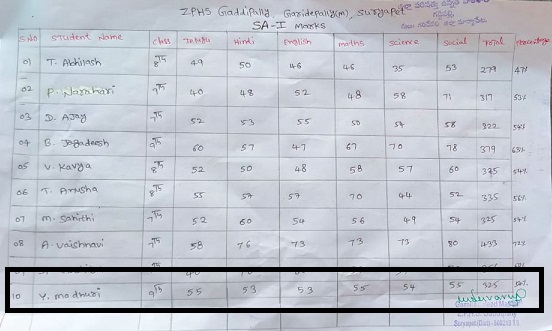 ZPHS Gaddipally, Garidepally(m), Suryapet
SA-I Marks
S.No Student Name Class Telugu Hindi English maths Science Social Total Percentage
01 T. Abhilash 8th 49 50 46 46 35 53 279 47%
02 P. Narahari 9th 40 48 52 48 58 71 317 53%
03 D. AJay 7th 52 53 55 50 54 58 322 54%
04 B. Jagadeesh 9th 60 57 47 67 70 78 379 63%
05 V. Kavya 8th 52 50 48 58 57 60 54%
06 T. Anusha 8th 55 57 57 70 44 52 335 56%
07 M. Sahithi 7th 52 60 54 56 49 54 325 54%
08 A. Vaishnavi 7th 58 76 73 73 73 80 433 72%
10 Y. madhuri 9th 55 53 53 55 54 55 325